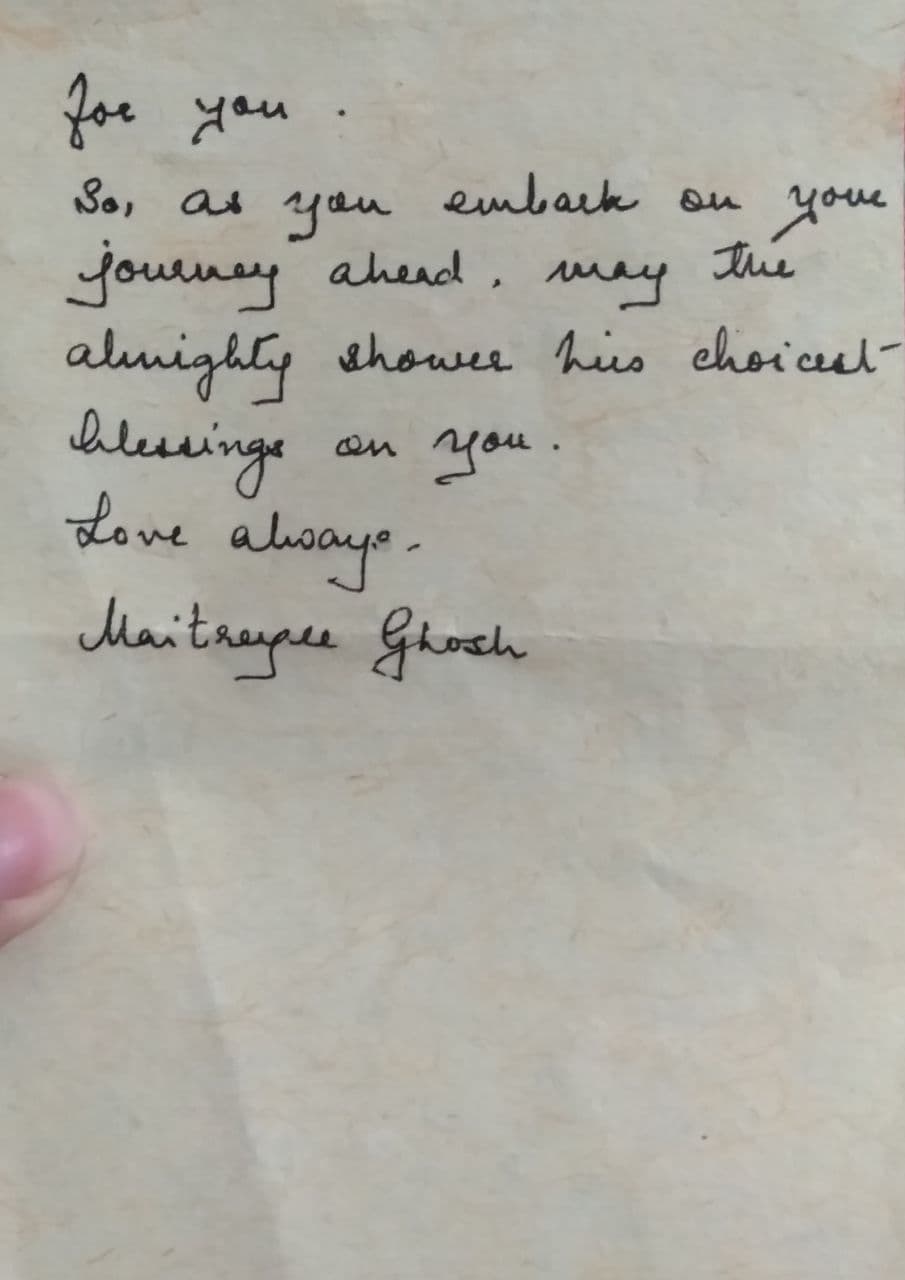 for you.
So, as you embark on your
journey ahead, may the
almighty shower his choicest
blessings on you.
Love always -
Maitreyee Ghosh